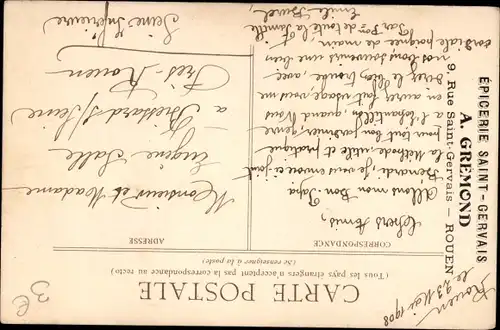 CARTE POSTALE
(Tous les pays étrangers n'acceptent pas la correspondance au recto)
(Se renseigner à la poste)
CORRESPONDANCE
ADRESSE
ÉPICERIE SAINT-GERVAIS
A. GRÉMOND
9, Rue Saint-Gervais — ROUEN
Rouen
le 23 Mai 1908
Chers Amis,
Allons mon Bon Papa
Bernard, je vous envoie ci-joint
la Méthode, utile et pratique
pour tout bon jardinier, genre
à l'échantillon, quand Vous
en aurez fait usage, vous me
direz le bien trouvé, avec
nos bons souvenirs une bien
cordiale poignée de main.
de toute la famille
Emile
Monsieur et Madame
Eugène Salle
à
Près Rouen
Seine Inférieure
3e